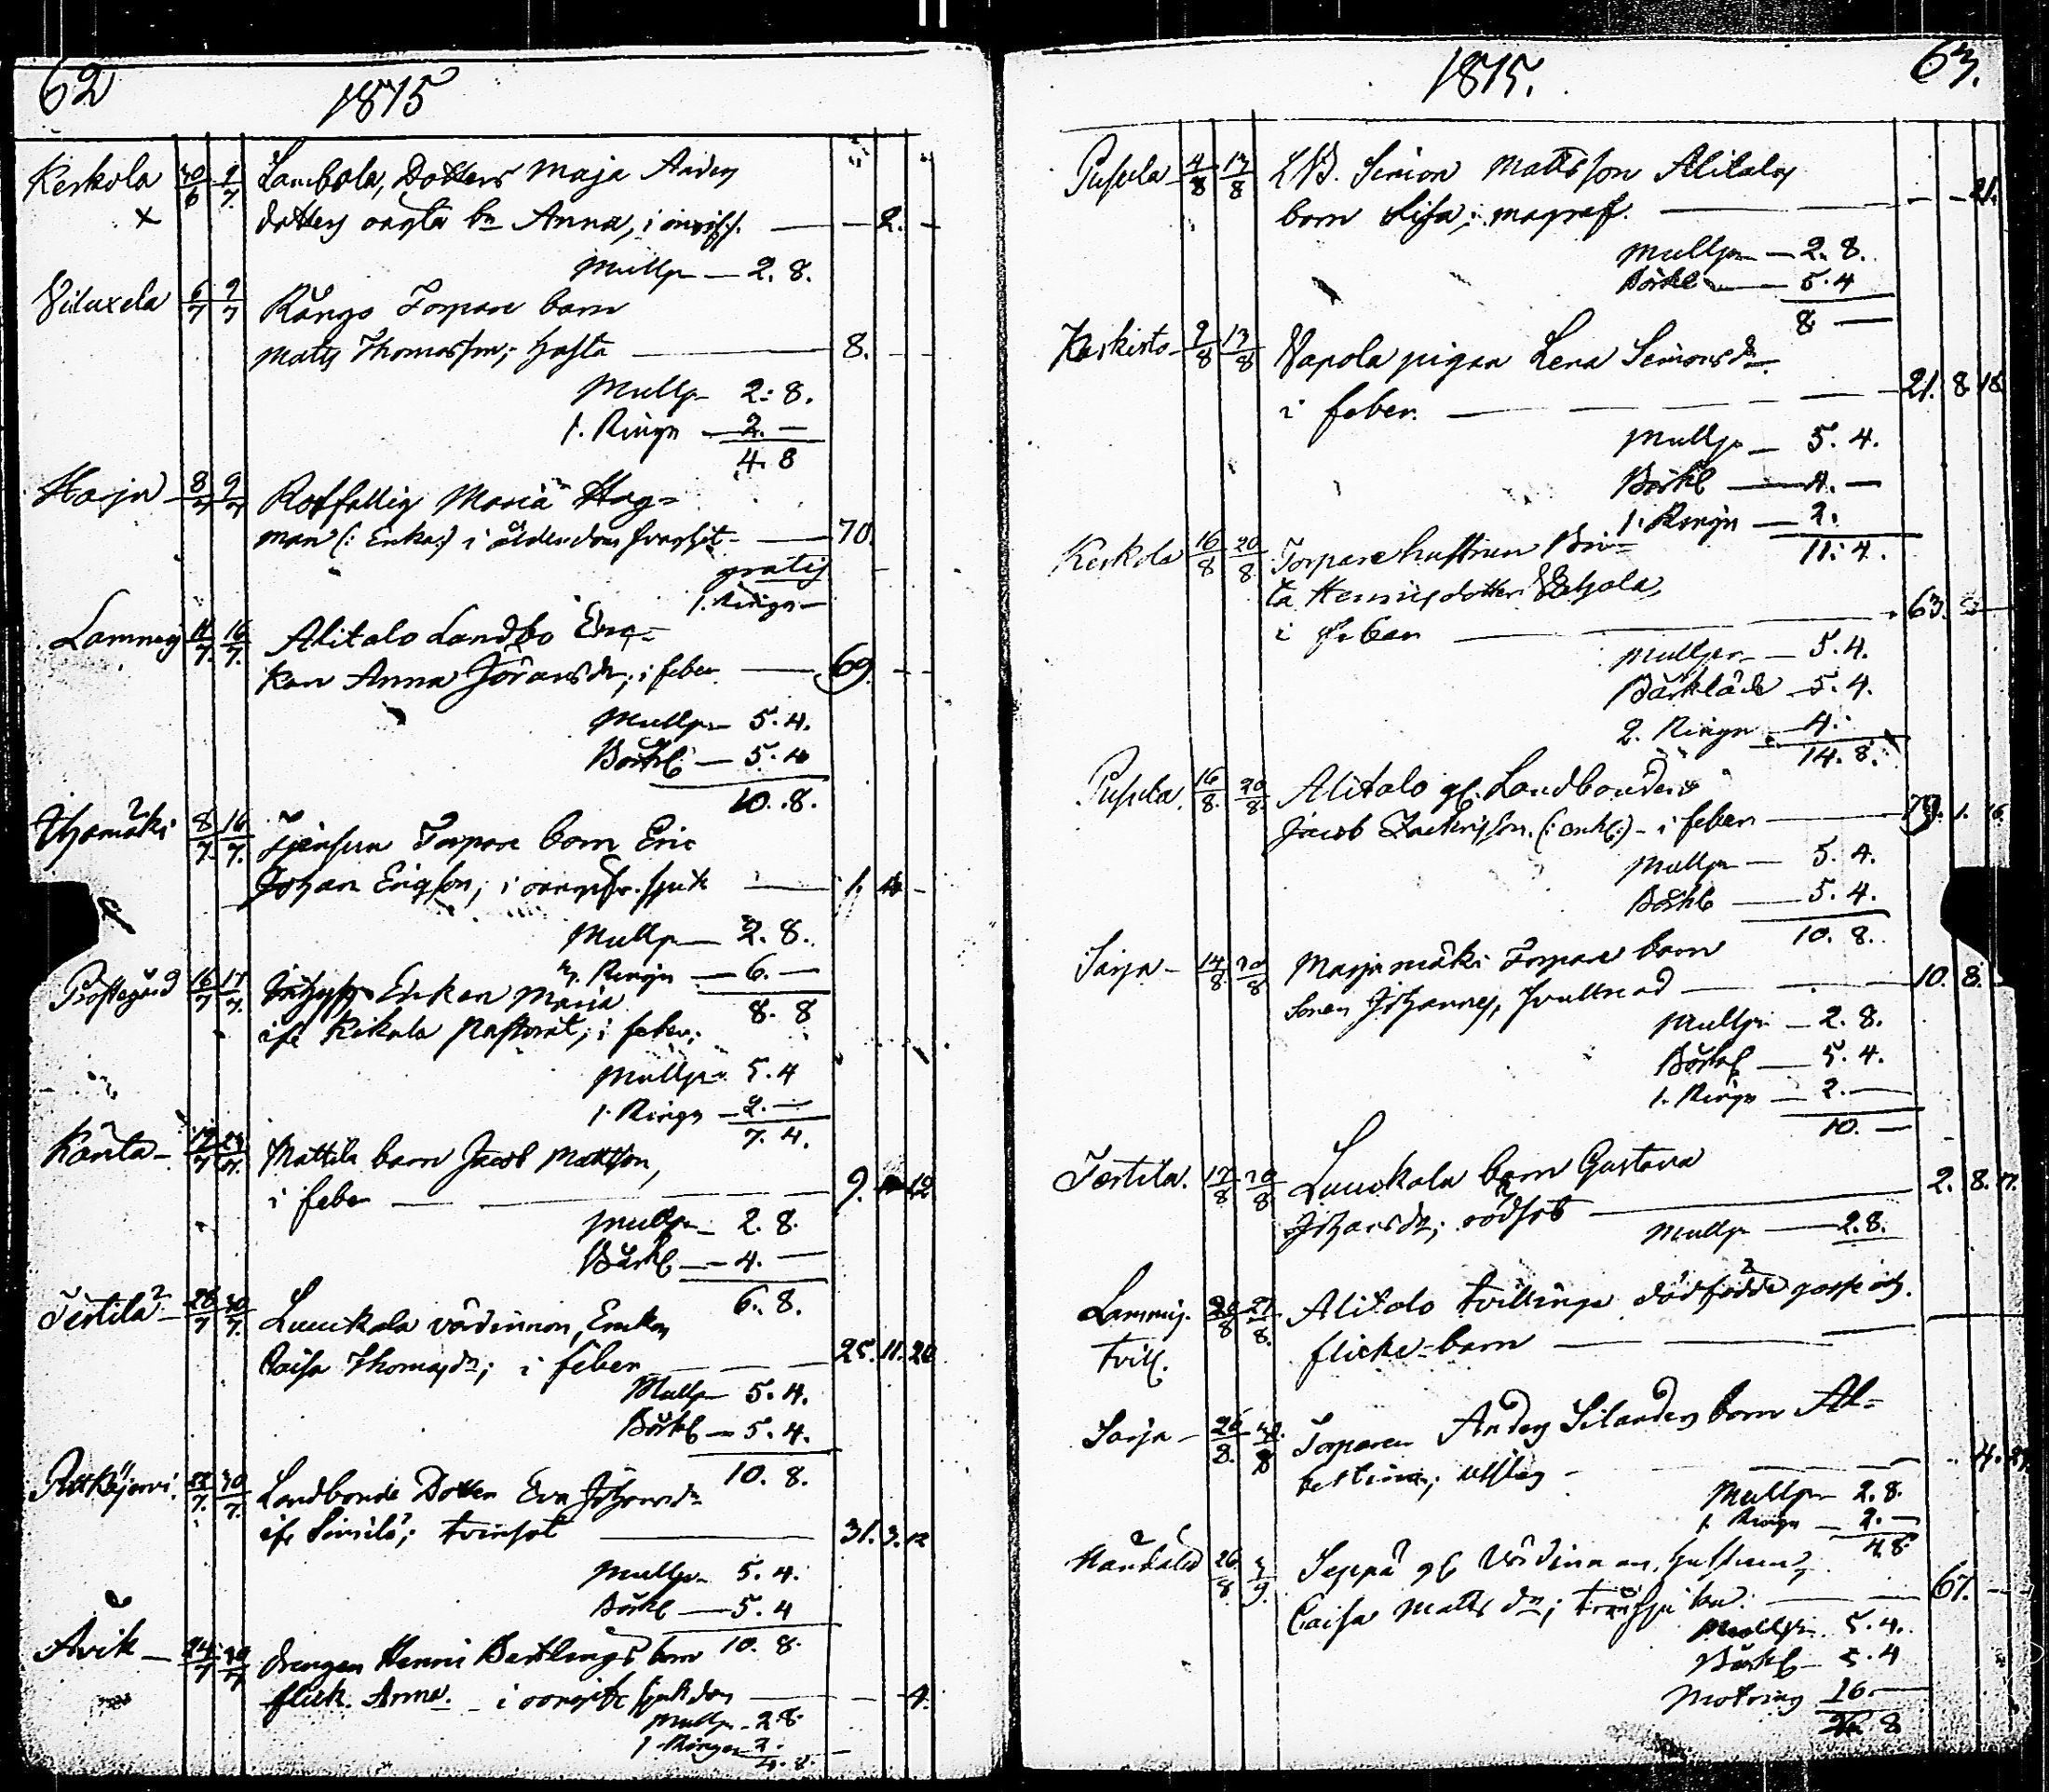 62
1815
Keskola 30/6 9/7 Lambola, Dotters Maja Anders
x dotters oägta bn Anna, i — — 2. —
Mullp — 2. 8.
Viluxela 6/7 9/7 Rångo Torpare barn
Matts Thomasson; hosta — 8. — —
Mullp 2. 8.
1. Ringn — 2. —
4. 8
Harju 8/7 9/7 Rotfattig Maria Hag=
man (: Enka:) i ålderdoms — 70.
gratis
1. Ringn —
Lammis 11/7 16/7 Alitalo Landbo En=
kan Anna Jöransdr, i feber — 69. — —
Mullp — 5. 4.
Bårkl. — 5. 4
10. 8.
8/7 16/7 Torpare barn Eric
Johan Ericsson; i — 1. 4 —
Mullp — 2. 8.
3. Ringn — 6. —
8. 8
Prostegård 16/7 17/7 Enkan Maria
ifr. Kikala Pastorat; i feber;
Mullp 5. 4
1. Ringn — 2. —
7. 4.
Kanta — Mattila barn Jacob Mattsson,
i feber — 9. 12
Mullp — 2. 8.
Bårkl — 4. —
6. 8.
Tertilä — 28/7 30/7 Luuckala värdinnan, Enkan
Caisa Thomasdr; i feber — 25. 11. 20
Mullp 5. 4.
Bårkl — 5. 4.
10. 8.
30/7 Landbonde Dotter Eva Johansdr
ifr. ; tvinsot — 31. 3. 12
Mullp. 5. 4.
Bårkl — 5. 4
10. 8.
Avik — 24/7 30/7 drengen Henric Bertlings barn
flick. Anna. — i — — 4.
Mullp — 2. 8.
1. Ringn 2.
4. 8
1815.
63.
Pusula 4/8 13/8 LB. Simon Mattsson Alitalos
barn Lisa; i — — — 21.
Mullpn — 2. 8.
Bårkl — 5. 4
8 —
Karkisto 9/8 13/8 Vapola pigan Lena Simonsdr.
i feber. — 21. 8. 18
Mullp — 5. 4.
Bårkl — 4. —
1. Ringn — 2.
11. 4.
Keskola 16/8 20/8 Torpare hustrun Bri=
ta Henricsdotter
i feber — 63.
Mullpn — 5. 4.
Bårkläde — 5. 4.
2. Ringn — 4.
14. 8.
Pusula. 16/8. 20/8. Alitalo gl. Landbonden
Jacob (: enkl:) — i feber — 79. 1. 16
Mullp — 5. 4.
Bårkl — 5. 4.
10. 8.
Sarja — 14/8. 20/8 Marjamäki Torpare barn
Sonen Johannes, — 10. 8.
Mullp — 2. 8.
Bårkl — 5. 4.
1. Ringn — 2. —
10. —
Tertila. 17/8 20/8 Luuckala barn Gustava
Johansdr; rödsot — 2. 8. 17.
Mullp — 2. 8.
Lammis. 27/8. Alitalo tvillings dödfödde gosse och.
tvill. flicke-barn —
Sarja — 26/8. Torparen Anders Silanders barn Al=
bertina; utslag — 4.
Mullp — 2. 8.
1. Ringn — 2. —
4. 8
26/8 3/9. Seppä gl. Värdinnan, hustrun
Caisa Mattsdr; — 67. — —
Mullp. 5. 4.
Bårkl — 5. 4
Motring 16. —
26. 8